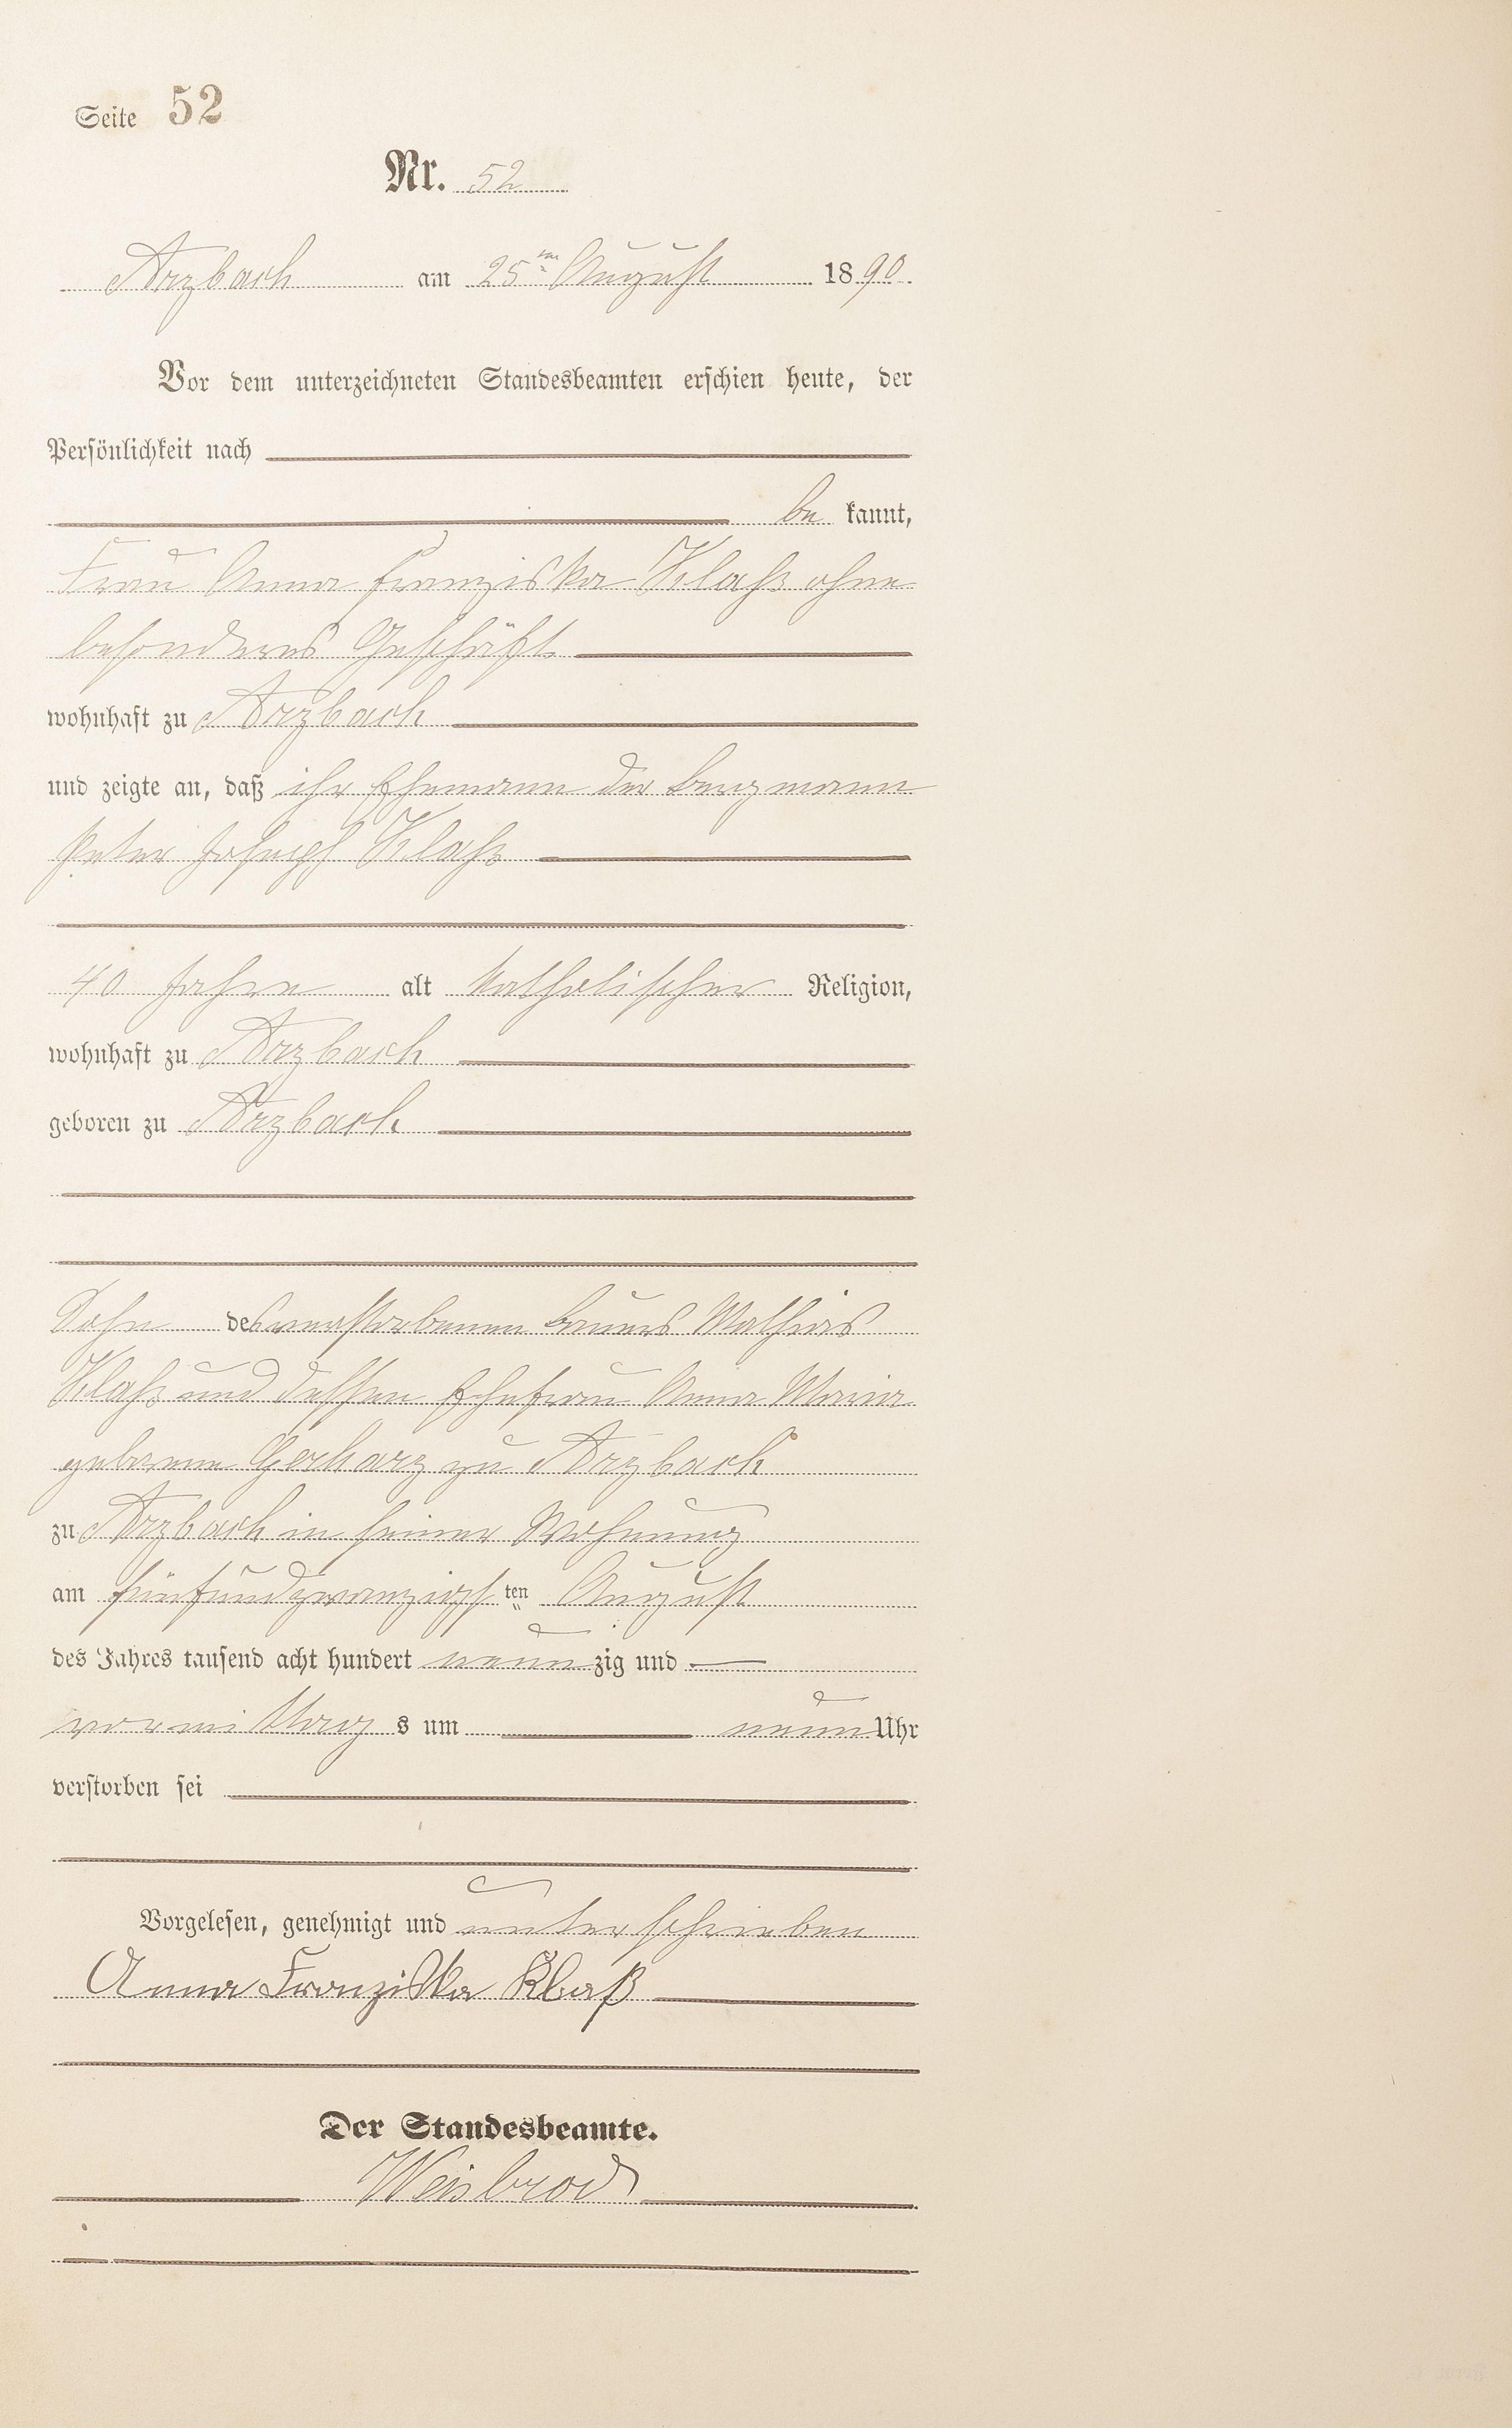 Seite 52
Nr. 52
Arzbach am 25ten August 1890
Vor dem unterzeichneten Standesbeamten erschien heute, der
Persönlichkeit nach
bekannt,
Frau Anna Franziska Klaß ohne
besonderes Geschäft
wohnhaft zu Arzbach
und zeigte an, daß ihr Ehemann der Bergmann
Peter Joseph Klaß
40 Jahre alt katholischer Religion,
wohnhaft zu Arzbach
geboren zu Arzbach
Sohn des verstorbenen Bauers Mathias
Klaß und dessen Ehefrau Anna Maria
geborene Gerharz zu Arzbach
zu Arzbach in seiner Wohnung
am fünfundzwanzigsten August
des Jahres tausend acht hundert neunzig und
vormittags um neun Uhr
verstorben sei
Vorgelesen, genehmigt und unterschrieben
Anna Franziska Klaß
Der Standesbeamte.
Weisbrod